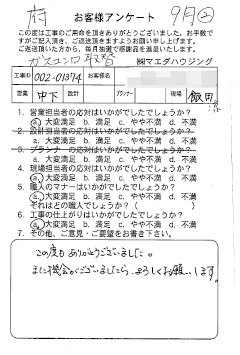 府 お客様アンケート 9月②
この度は工事のご用命を頂きありがとうございました。お手数で
すがご記入頂き、ご返送頂きますようお願い申し上げます。
ご返送頂いた方から、毎月抽選で感謝品を進呈いたします。
ガスコンロ取替 ㈱マエダハウジング
工事ID 002-01374 お客様名
営業 中下 設計 プランナー 現場 飯田
1. 営業担当者の応対はいかがでしたでしょうか?
a. 大変満足 b. 満足 c. やや不満 d. 不満
2. 設計担当者の応対はいかがでしたでしょうか?
a. 大変満足 b. 満足 c. やや不満 d. 不満
3. プランナーの応対はいかがでしたでしょうか?
a. 大変満足 b. 満足 c. やや不満 d. 不満
4. 現場担当者の応対はいかがでしたでしょうか?
a. 大変満足 b. 満足 c. やや不満 d. 不満
5. 職人のマナーはいかがでしたでしょうか?
a. 大変満足 b. 満足 c. やや不満 d. 不満
それはどの職人でしょうか?( )
6. 工事の仕上がりはいかがでしたでしょうか?
a. 大変満足 b. 満足 c. やや不満 d. 不満
7. その他、ご意見・ご要望をお書き下さい。
この度もありがとうございました。
また機会がございましたら、よろしくお願いします。